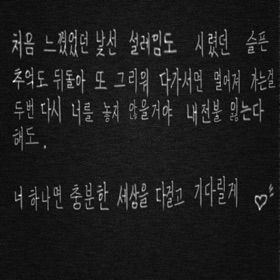 처음 느꼈었던 낯선 설레임도 시렸던 슬픈
추억도 뒤돌아 또 그리워 다가서면 멀어져 가는걸
두번 다시 너를 놓지 않을거야 내전불 잃는다
해도.
너 하나면 충분한 세상을 다걸고 기다릴게